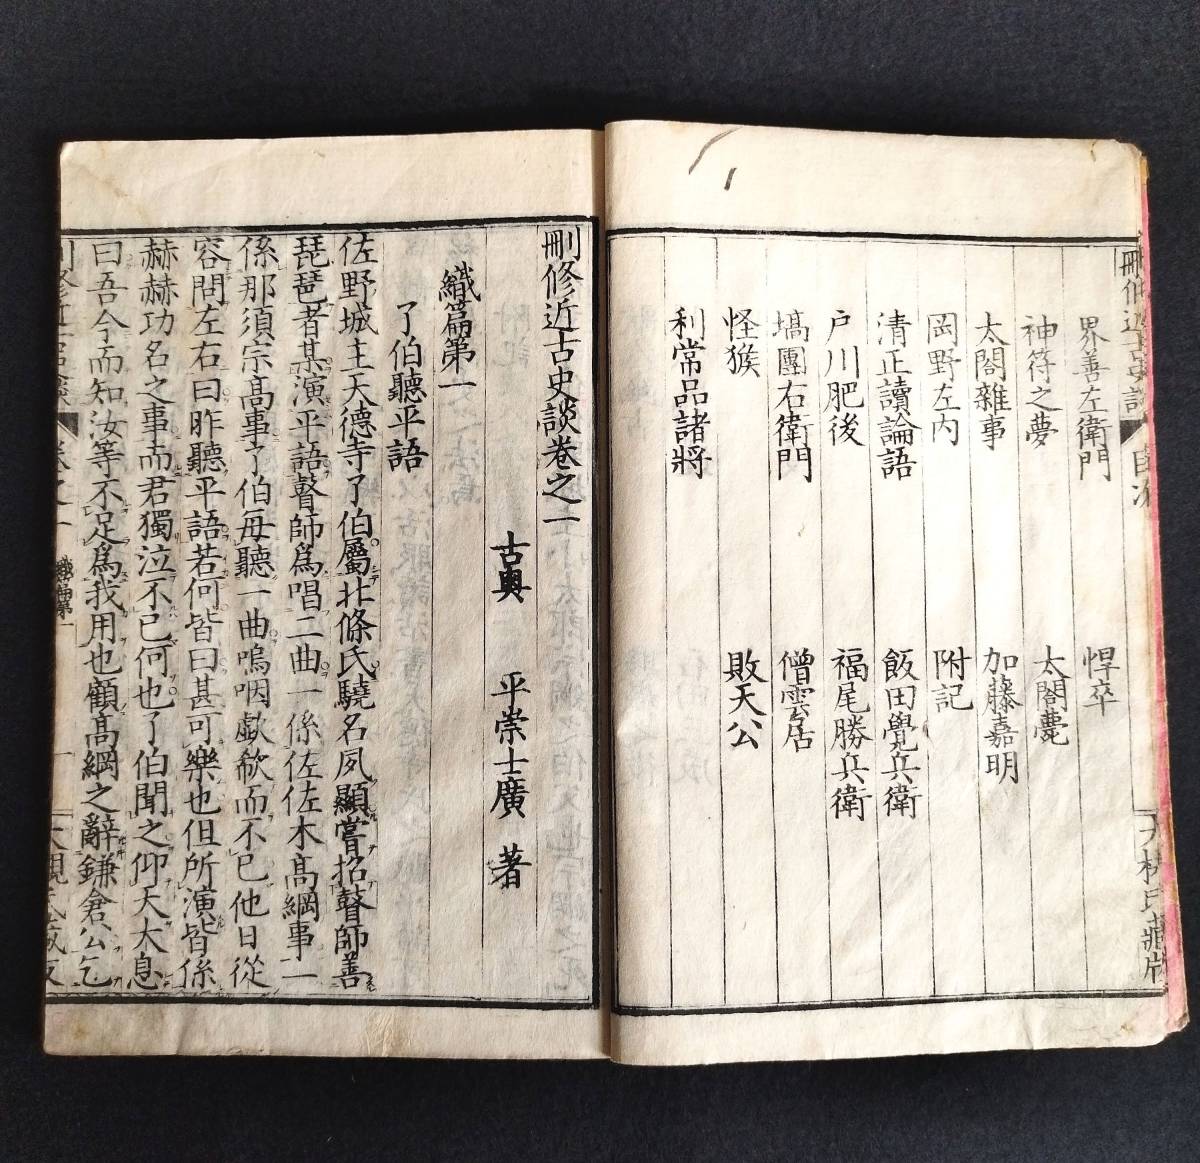 刪修近古史談 目次 大槻氏藏版
界善左衛門 悍卒
神符之夢 太閤薨
太閤雜事 加藤嘉明
岡野左内 附記
清正讀論語 飯田覺兵衛
戸川肥後 福尾勝兵衛
塙團右衛門 僧雲居
怪猴 敗天公
利常品諸將
刪修近古史談卷之一
古奥 平崇士廣 著
織篇第一
了伯聽平語
佐野城主天德寺了伯屬北條氏驍名夙顯嘗招瞽師善
琵琶者某演平語瞽師爲唱二曲一係佐佐木高綱事一
係那須宗高事了伯毎聽一曲嗚咽歔欷而不已他日從
容問左右曰昨聽平語若何皆曰甚可樂也但所演皆係
赫赫功名之事而君獨泣不已何也了伯聞之仰天大息
曰吾今而知汝等不足爲我用也顧高綱之辭鎌倉公乞
刪修近古史談 卷之一 織篇第一 一 大槻氏藏版